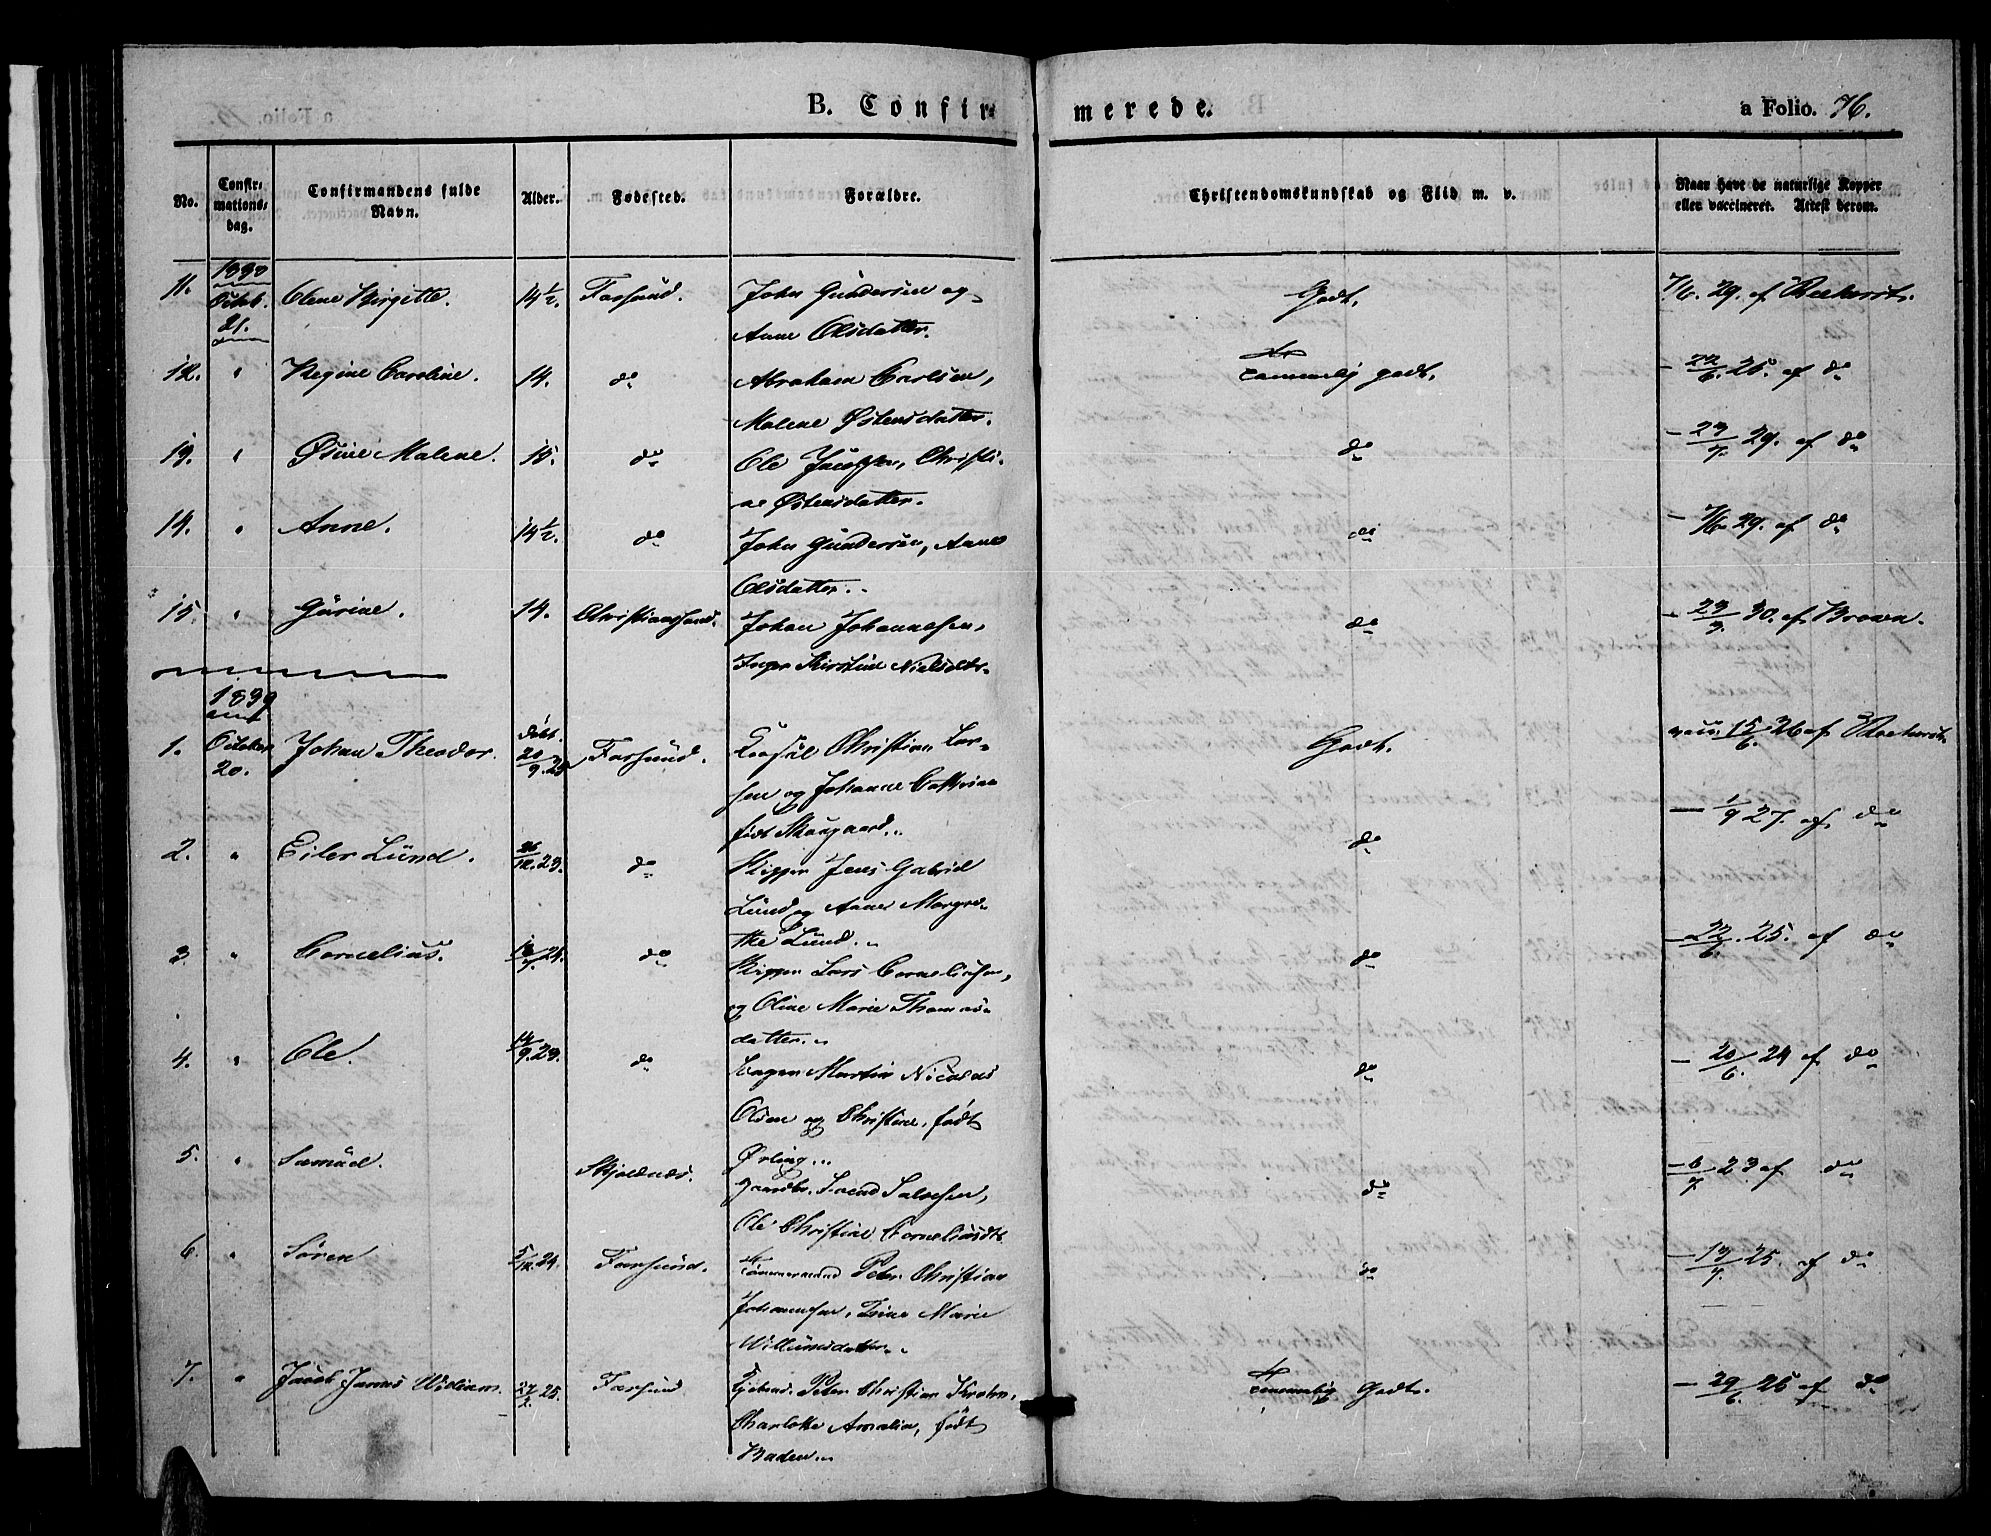 B. Confirmerede. a Folio. 76.
No. Confirmationsdag. Confirmandens fulde Navn. Alder. Fødested. Forældre. Christendomskundskab og Flid m. v. Naar havt de naturlige Kopper eller vaccineret. Attest derom.
11. Octob. 21. Olene Birgitte. 14 1/2. Farsund. John Gundersen og Godt. 7/6. 29. af
Anne Olsdatter.
12. " Regine Caroline. 14. do Abraham Carlsen, temmelig godt. - 22/6. 25. af do
Malene Østensdatter.
13. " Osine Malene. 15. do Ole Jacobsen, Christi- do - 23/7. 29. af do
ne Østensdatter.
14. " Anne. 14 1/2. do John Gundersen, Anne do - 7/6. 29. af do
Olsdatter.
15. " Gurine. 14. Christianssand. Johan Johannesen, do - 23/9. 30. af Brown.
Inger Kirstine Nielsdtr.
1839
1. October 20. Johan Theodor. født 20/9. 25 Farsund. Consul Christian Lar- Godt. vacc. 15/6. 26 af
sen og Johanne Cathrine
født Skougaard.
2. " Eiler Lund. 26/12. 23. do Skipper Jens Gabriel do - 1/9 27. af do
Lund og Anne Margre-
the Lund.
3. " Cornelius. do Skipper Lars Corneliusen, do - 22/6. 25. af do
og Oline Marie Thomas-
datter.
4. " Ole. 14/9. 23. do Martin Nicolai do - 20/6. 24 af do
Olsen og Christine, født
Ørling.
5. " Samuel. Skjoldnæs. Svend Salvesen, do - 6/7 23 af do
Ole Christine Corneliusdtr.
6. " Sören 5/12. 24. Farsund. Tömmermand Peter Christian do - 13/7. 25. af do
Johannesen, Trine Marie
Willumsdatter.
7. " Jacob James William. 27/2. 25. Farsund Peter Christian Krohn, temmelig Godt. - 29/6. 25 af do
Charlotte Amalia, født
Baden.